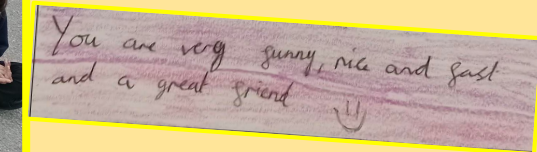 You are very funny, nice and fast
and a great friend